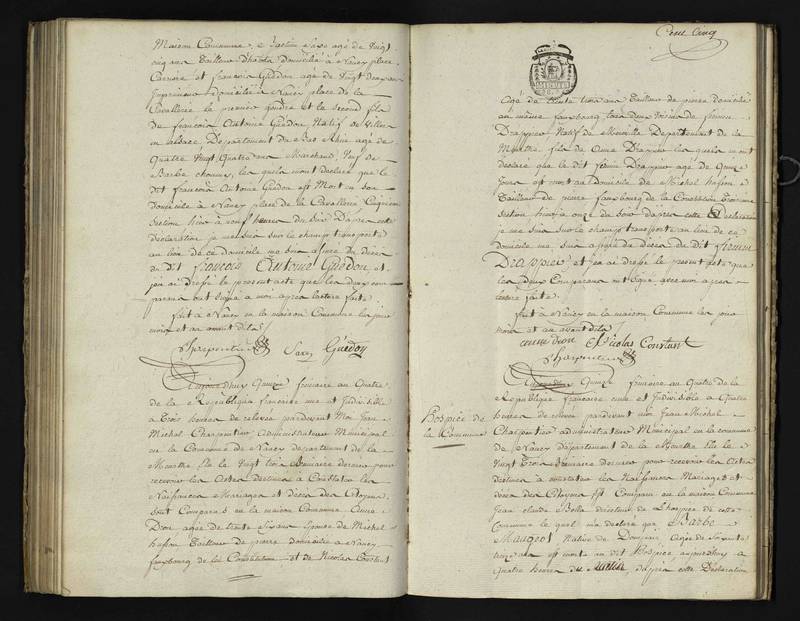 Maison Commune, e Justin Saxe agé de Vingt
cinq ans Tailleur d'habits domicilié à Nancy place
Carriere et françois Guédon agé de Vingt Deux ans
Imprimeur domicilié à Nancy place de la
Cavallerie le premier gendre et le second fils
de françois Antoine Guédon Natif de
en alsace Département du Bas Rhin agé de
Quatre Vingt Quatre ans Marchand, Veuf de
Barbe les quels m'ont déclaré que le
dit françois Antoine Guédon est Mort en son
domicile à Nancy place de la Cavallerie Cinquieme
Section hier à neuf heures du Soir D'après cette
déclaration je me suis sur le champ transporté
au lieu de ce domicile me suis assuré du décès
du dit François Antoine Guédon et
j'en ai dressé le present acte que les deux com-
parans ont signé a moi apres lecture faite
fait à Nancy en la maison Commune les jour
mois et an avant dits
Charpentier Saxe Guédon
Aujourdhuy Quinze frimaire au Quatre
de la République française une et Indivisible
à Trois heures de relevée pardevant Moi Jean
Michel Charpentier Administrateur Municipal
en la Commune de Nancy département de la
Meurthe Elu le Vingt trois Brumaire dernier pour
recevoir les Actes destinés à Constater les
Naissances Mariages et décès des Citoyens
sont Comparus en la maison Commune Anne
Dron agée de trente Six ans Epouse de Michel
husson Tailleur de pierre domiciliée à Nancy
fauxbourg de la Constitution et de Nicolas Constant
Cent Cinq
Agé de trente trois ans Tailleur de pierre domicilié
au même fauxbourg tous deux Voisins de firmin
Drappier Natif de Département de la
Meurthe fils de Anne Drappier les quels m'ont
declaré que le dit firmin Drappier agé de Quinze
Jours est mort au Domicile de Michel husson
Tailleur de pierre fauxbourg de la Constitution Troisieme
Section hier à onze du Soir d'après cette Declaration
je me suis sur le champ transporté au lieu de ce
domicile me suis assuré du décès du dit firmin
Drappier et j'en ai dressé le present Acte que
les deux Comparans ont Signé avec moi apres
lecture faite
fait à Nancy en la maison Commune les jour
mois et an avant dits
anne dron Nicolas Constant
Charpentier
Hospice de
la Commune
Aujourdhuy Quinze frimaire au Quatre de la
République française une et Indivisible à Quatre
heures de relevée pardevant moi Jean Michel
Charpentier administrateur Municipal en la commune
de Nancy département de la Meurthe Elu le
Vingt Trois Brumaire dernier pour recevoir les Actes
destinés à constater les Naissances Mariages et
décès des Citoyens Est Comparu en la maison Commune
Jean Claude directeur de L'hospice de cette
Commune le quel m'a déclaré que Barbe
Maugeot Native de Agée de Soixante
ans est morte au dit hospice, aujourdhuy à
Quatre heures du matin, d'après cette Déclaration